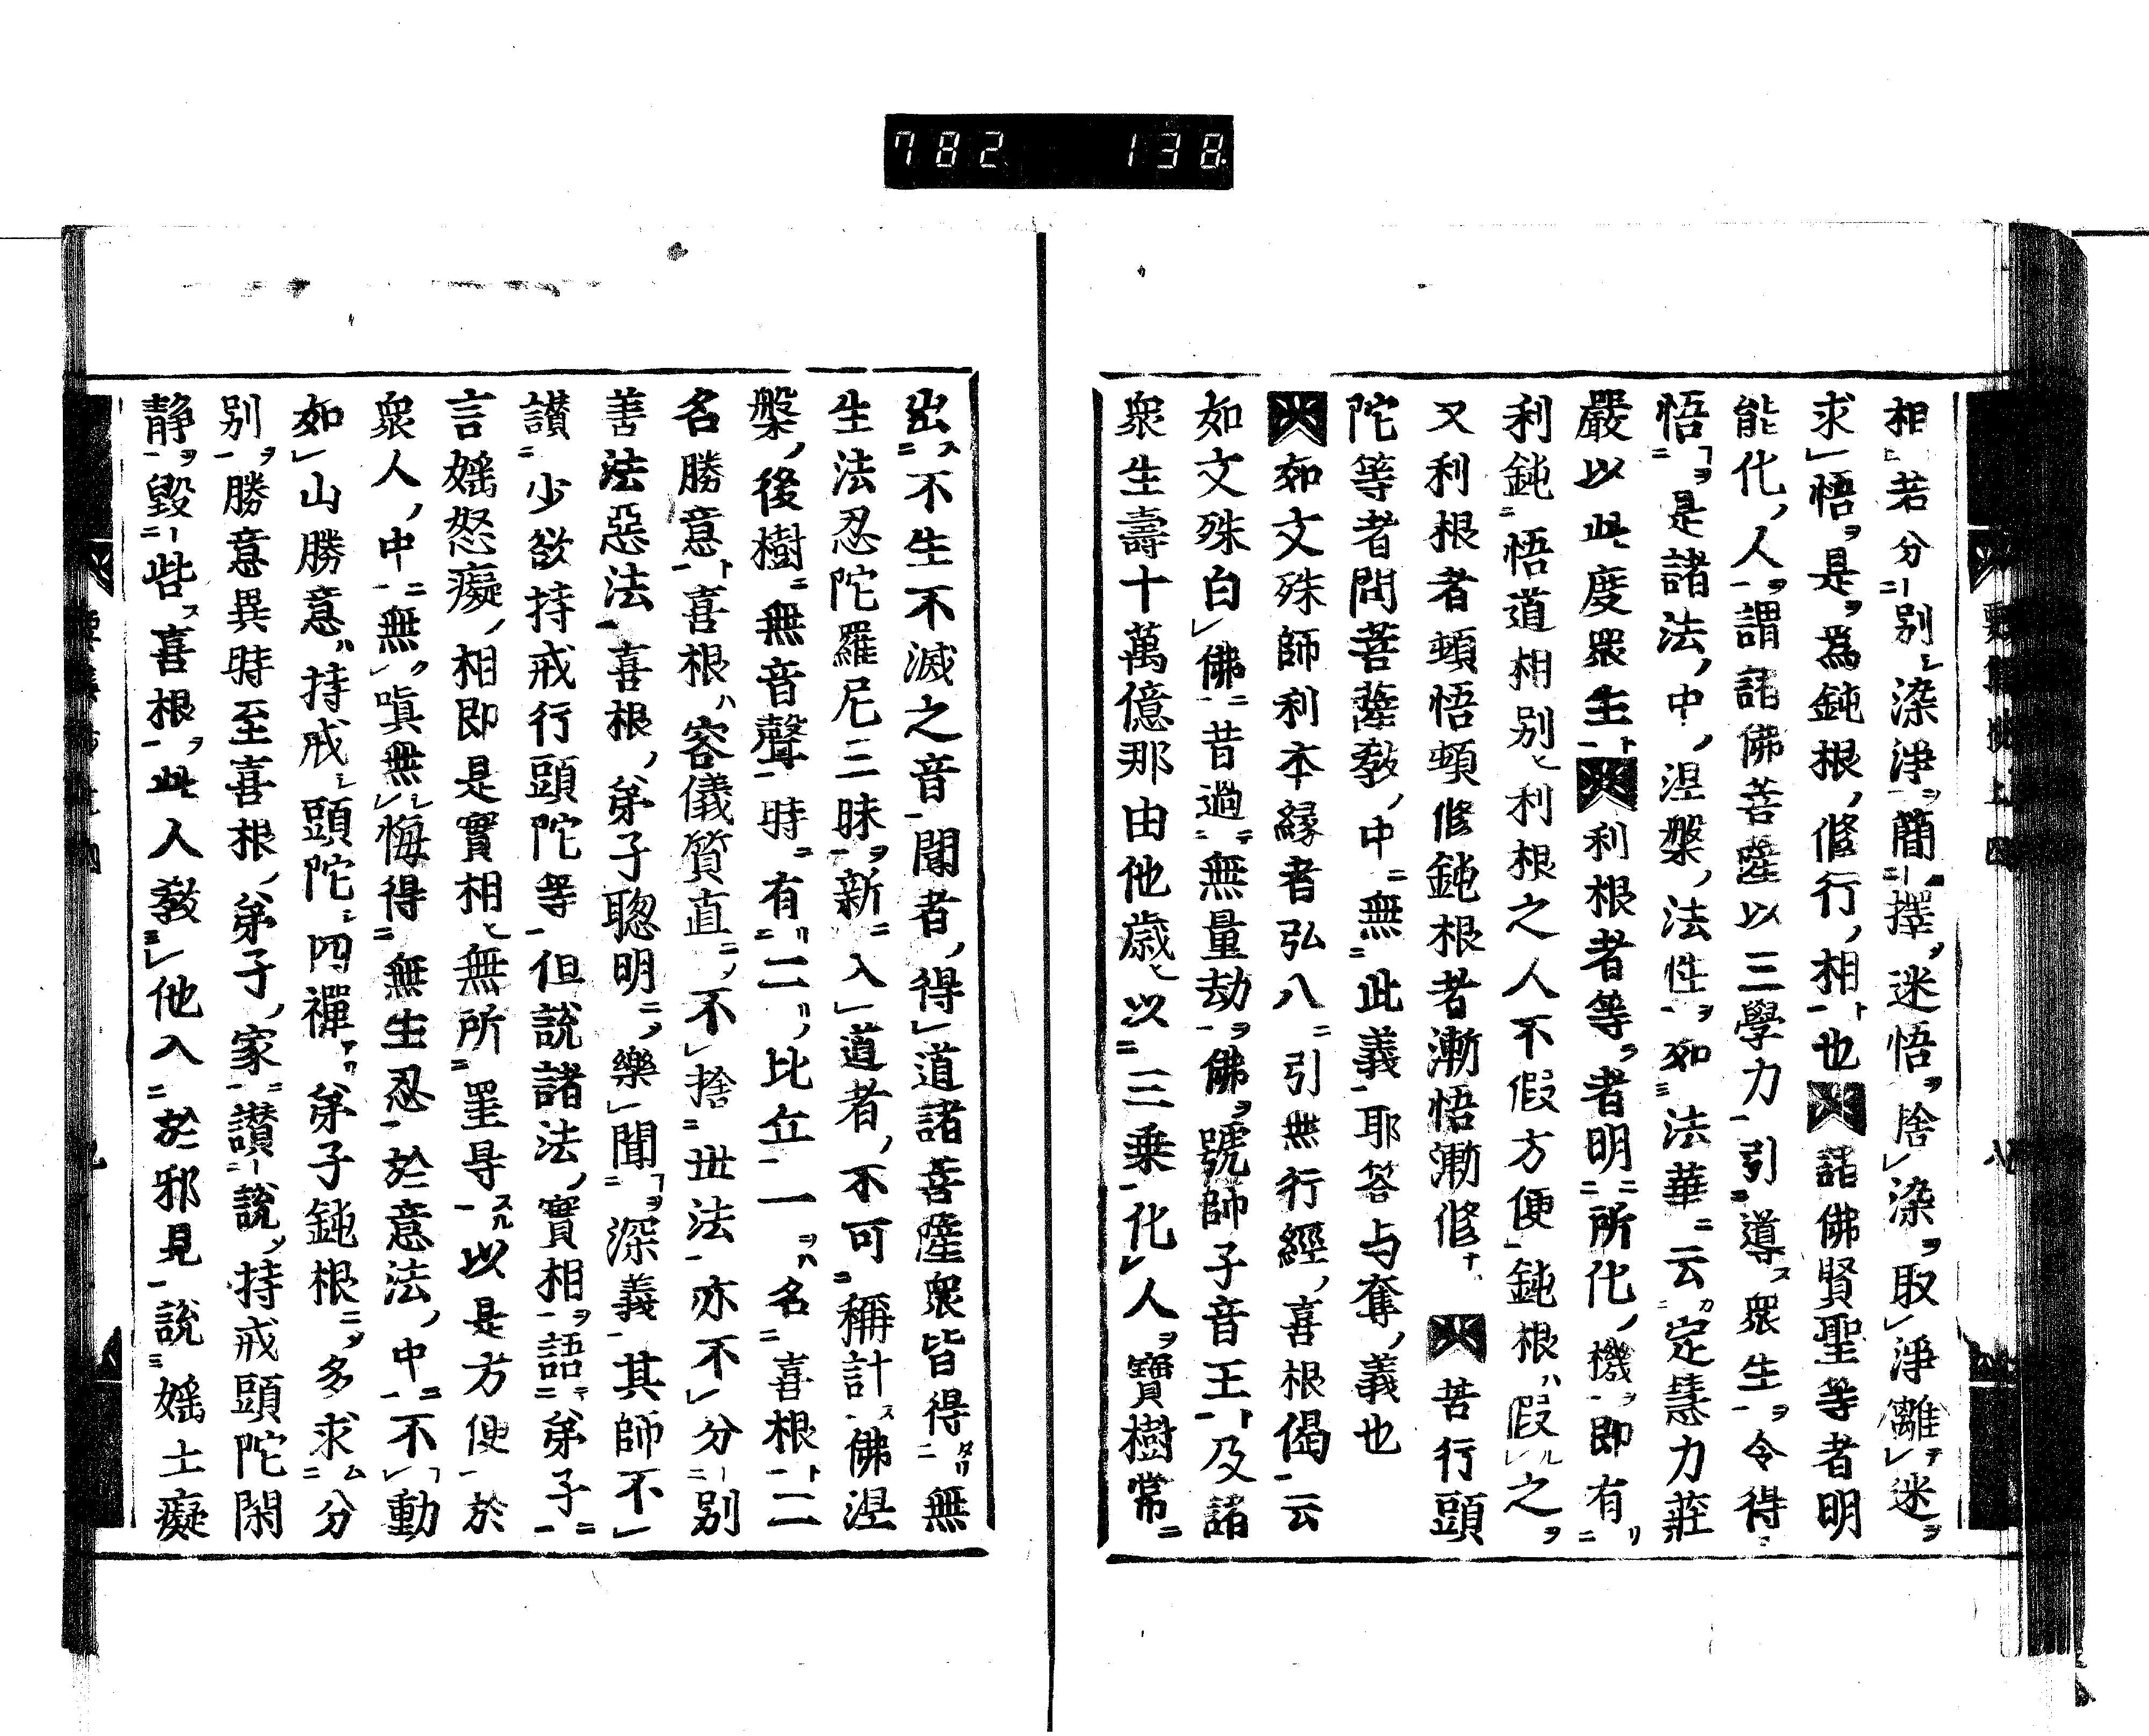 782 138
相若分別染淨簡擇迷悟捨染取淨離迷
求悟是為鈍根修行相也 諸佛賢聖等者明
能化人謂諸佛菩薩以三學力引導眾生令得
悟是諸法中涅槃法性如法華云定慧力莊
嚴以此度眾生 利根者等者明所化機即有
利鈍悟道相別利根之人不假方便鈍根假之
又利根者頓悟頓修鈍根者漸悟漸修 苦行頭
陀等者問菩薩教中無此義耶答与奪義也
如文殊師利本緣者弘八引無行經喜根偈云
如文殊白佛昔過無量劫佛號師子音王及諸
眾生壽十萬億那由他歲以三乗化人寶樹常
出不生不滅之音聞者得道諸菩薩眾皆得無
生法忍陀羅尼三昧新入道者不可稱計佛涅
槃後樹無音聲時有二比丘一名喜根二
名勝意喜根容儀質直不捨世法亦不分別
善法惡法喜根弟子聰明樂聞深義其師不
讃少欲持戒行頭陀等但說諸法實相語弟子
言婬怒癡相即是實相無所罣㝵以是方便於
眾人中無嗔無悔得無生忍於意法中不動
如山勝意持戒頭陀四禪弟子鈍根多求分
別勝意異時至喜根弟子家讃說持戒頭陀閑
静毀呰喜根此人教他入於邪見說婬土癡